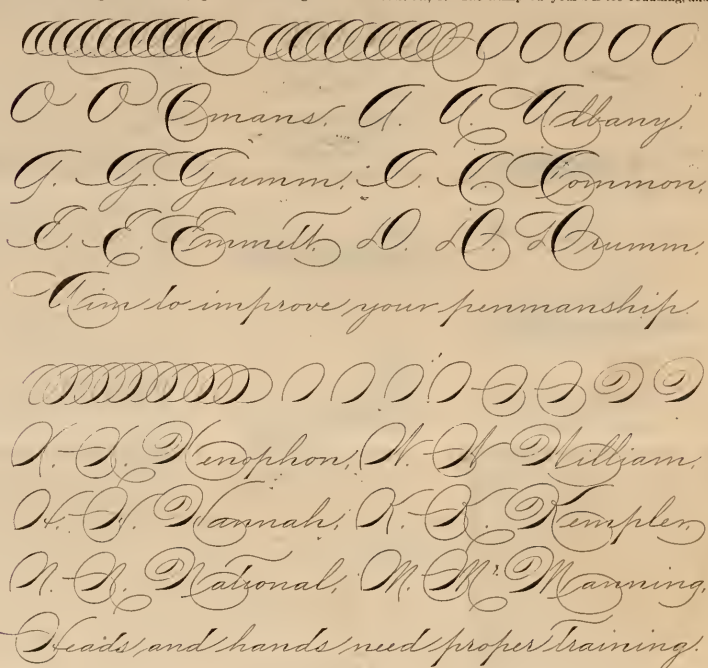 O O O O O
O O Omans. A. A. Albany.
G. G. Gumm. C. C. Common.
E. E. Emmett. D. D. Drumm.
Aim to improve your penmanship.
X. X. Xenophon. W. W. William.
H. H. Hannah. K. K. Kempler.
N. N. National. M. M. Manning.
Heads and hands need proper training.